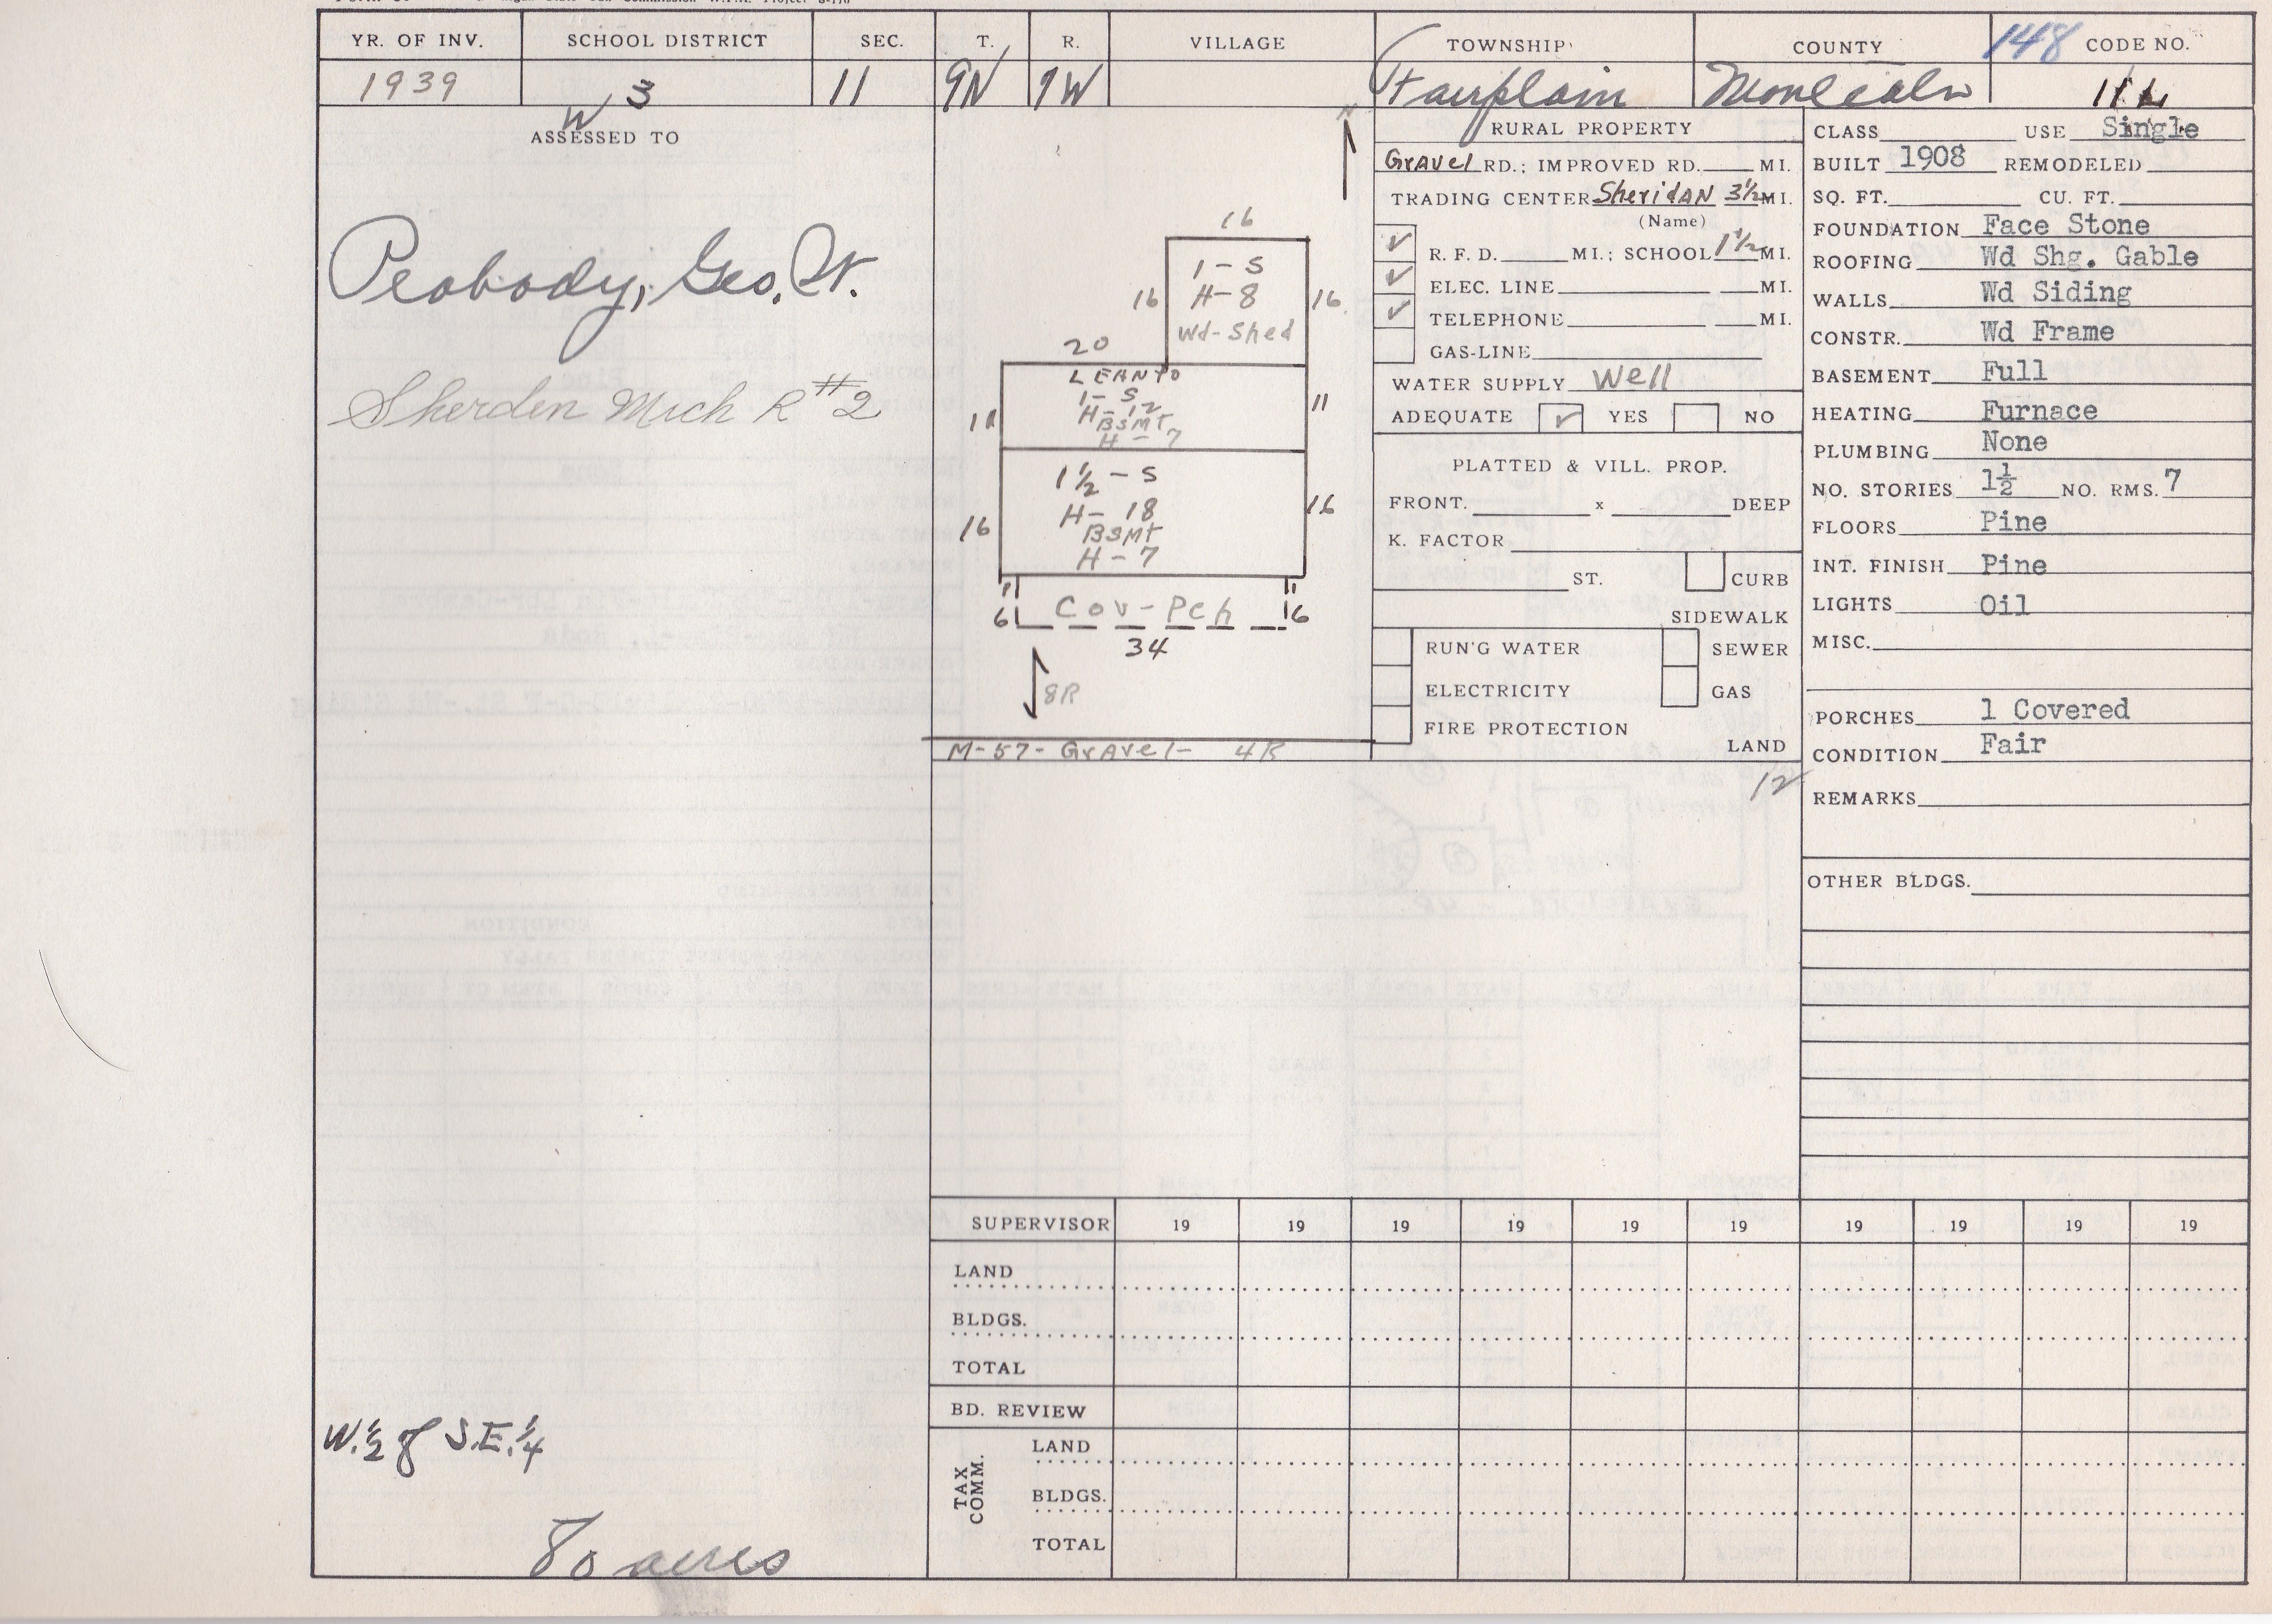 YR. OF INV. SCHOOL DISTRICT SEC. T. R. VILLAGE TOWNSHIP COUNTY 148 CODE NO.
1939 W 3 11 9N 7W Fairplain Montcalm
ASSESSED TO
Peabody, Geo. W.
Sherden Mich R #2
W.½ of S.E.¼
80 acres
N
16
1-S
H-8
Wd-Shed
16 16
20
LEANTO
1-S
H-12
BSMT
H-7
11 11
1½-S
H-18
BSMT
H-7
16 16
6 Cov-Pch 6
34
8R
M-57-Gravel- 4R
RURAL PROPERTY
Gravel RD.; IMPROVED RD. MI.
TRADING CENTER Sheridan 3½ MI.
(Name)
✓ R. F. D. MI.; SCHOOL 1½ MI.
✓ ELEC. LINE MI.
✓ TELEPHONE MI.
GAS-LINE
WATER SUPPLY Well
ADEQUATE ✓ YES NO
PLATTED & VILL. PROP.
FRONT. x DEEP
K. FACTOR
ST. CURB
SIDEWALK
RUN'G WATER SEWER
ELECTRICITY GAS
FIRE PROTECTION
LAND
12
CLASS USE Single
BUILT 1908 REMODELED
SQ. FT. CU. FT.
FOUNDATION Face Stone
ROOFING Wd Shg. Gable
WALLS Wd Siding
CONSTR. Wd Frame
BASEMENT Full
HEATING Furnace
PLUMBING None
NO. STORIES 1½ NO. RMS. 7
FLOORS Pine
INT. FINISH Pine
LIGHTS Oil
MISC.
PORCHES 1 Covered
CONDITION Fair
REMARKS
OTHER BLDGS.
SUPERVISOR 19 19 19 19 19 19 19 19 19 19
LAND
BLDGS.
TOTAL
BD. REVIEW
TAX COMM.
LAND
BLDGS.
TOTAL